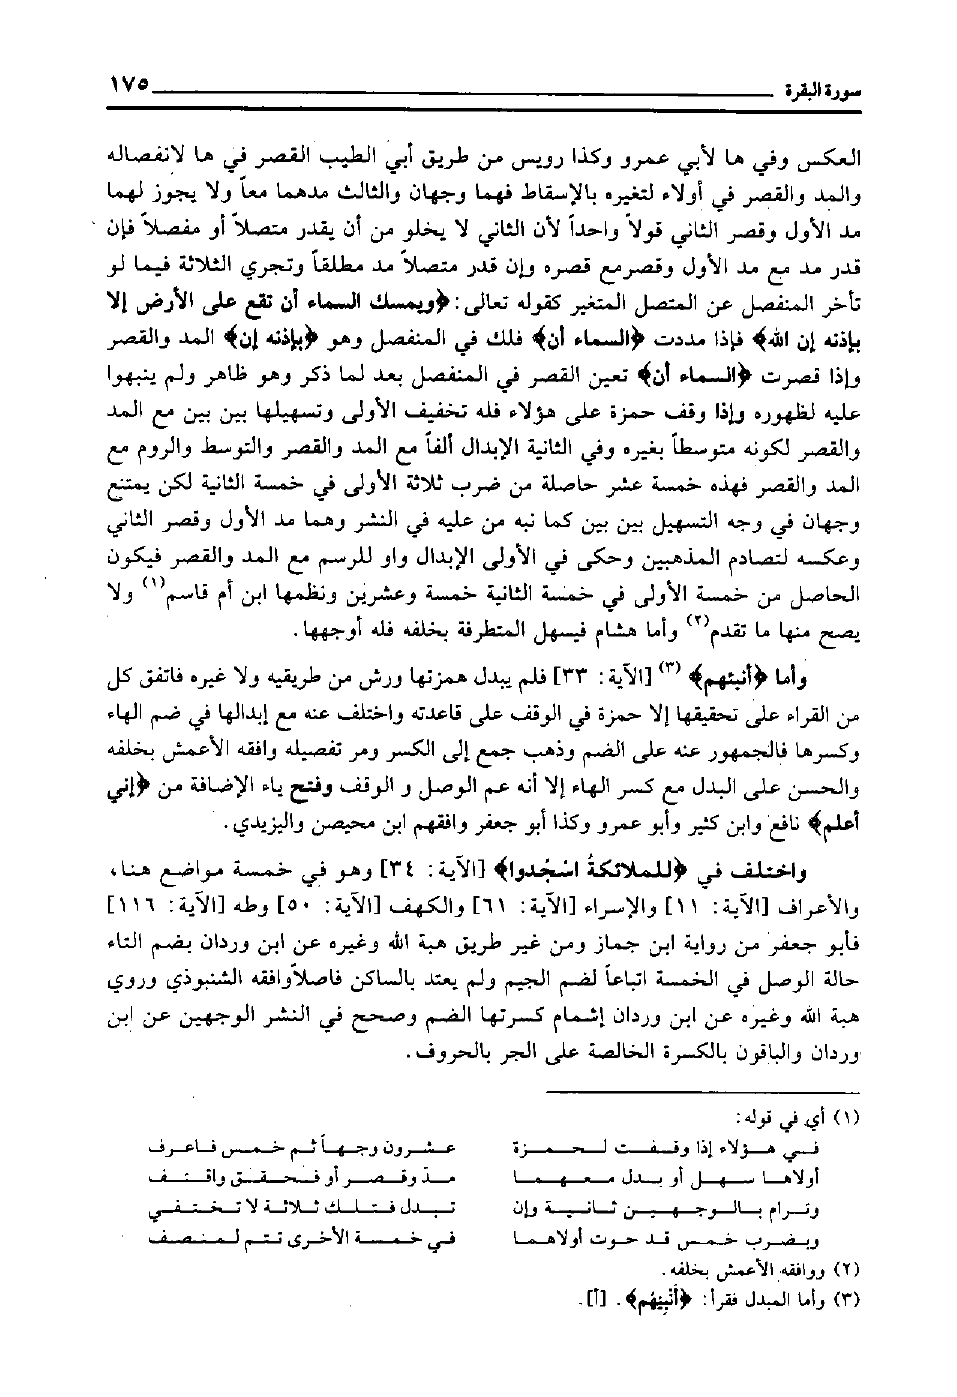 سورة البقرة ١٧٥
العكس وفي ها لأبي عمرو وكذا رويس من طريق أبي الطيب القصر في ها لانفصاله
والمد والقصر في أولاء لتغيره بالإسقاط فهما وجهان والثالث مدهما معاً ولا يجوز لهما
مد الأول وقصر الثاني قولاً واحداً لأن الثاني لا يخلو من أن يقدر متصلاً أو منفصلاً فإن
قدر مد مع مد الأول وقصر مع قصره وإن قدر متصلاً مد مطلقاً وتجري الثلاثة فيما لو
تأخر المنفصل عن المتصل المتغير كقوله تعالى: ﴿ويمسك السماء أن تقع على الأرض إلا
بإذنه إن الله﴾ فإذا مددت ﴿السماء أن﴾ فلك في المنفصل وهو ﴿بإذنه إن﴾ المد والقصر
وإذا قصرت ﴿السماء أن﴾ تعين القصر في المنفصل بعد لما ذكر وهو ظاهر ولم ينبهوا
عليه لظهوره وإذا وقف حمزة على هؤلاء فله تخفيف الأولى وتسهيلها بين بين مع المد
والقصر لكونه متوسطاً بغيره وفي الثانية الإبدال ألفاً مع المد والقصر والتوسط والروم مع
المد والقصر فهذه خمسة عشر حاصلة من ضرب ثلاثة الأولى في خمسة الثانية لكن يمتنع
وجهان في وجه التسهيل بين بين كما نبه من عليه في النشر وهما مد الأول وقصر الثاني
وعكسه لتصادم المذهبين وحكى في الأولى الإبدال واو للرسم مع المد والقصر فيكون
الحاصل من خمسة الأولى في خمسة الثانية خمسة وعشرين ونظمها ابن أم قاسم(١) ولا
يصح منها ما تقدم(٢) وأما هشام فيسهل المتطرفة بخلفه فله أوجهها.
وأما ﴿أنبئهم﴾(٣) [الآية: ٣٣] فلم يبدل همزتها ورش من طريقيه ولا غيره فاتفق كل
من القراء على تحقيقها إلا حمزة في الوقف على قاعدته واختلف عنه مع إبدالها في ضم الهاء
وكسرها فالجمهور عنه على الضم وذهب جمع إلى الكسر ومر تفصيله وافقه الأعمش بخلفه
والحسن على البدل مع كسر الهاء إلا أنه عم الوصل و الوقف وفتح ياء الإضافة من ﴿إني
أعلم﴾ نافع وابن كثير وأبو عمرو وكذا أبو جعفر وافقهم ابن محيصن واليزيدي.
واختلف في ﴿للملائكةُ اسْجُدوا﴾ [الآية: ٣٤] وهو في خمسة مواضع هنا،
والأعراف [الآية: ١١] والإسراء [الآية: ٦١] والكهف [الآية: ٥٠] وطه [الآية: ١١٦]
فأبو جعفر من رواية ابن جماز ومن غير طريق هبة الله وغيره عن ابن وردان بضم التاء
حالة الوصل في الخمسة اتباعاً لضم الجيم ولم يعتد بالساكن فاصلاً وافقه الشنبوذي وروي
هبة الله وغيره عن ابن وردان إشمام كسرتها الضم وصحح في النشر الوجهين عن ابن
وردان والباقون بالكسرة الخالصة على الجر بالحروف.
(١) أي في قوله:
في هؤلاء إذا وقفت لحمزة عشرون وجهاً ثم خمس فاعرف
أولاهما سهل أو بدل معهما مد وقصر أو فحقق واقتف
وترام بالوجهين ثانية وإن تبدل فتلك ثلاثة لا تختفي
وبضرب خمس قد حوت أولاهما في خمسة الأخرى تتم لمنصف
(٢) ووافقه الأعمش بخلفه.
(٣) وأما المبدل فقرأ: ﴿أَنْبِيْهُم﴾. [أ].